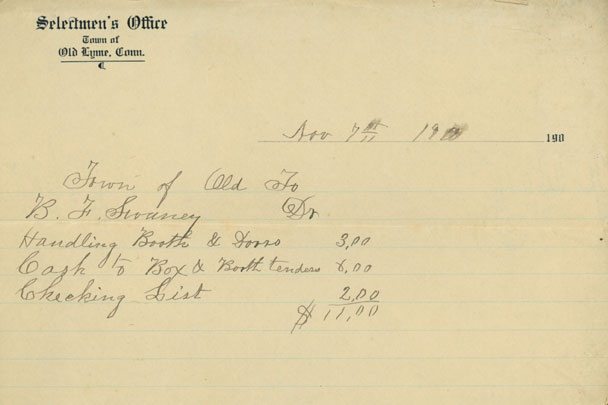 Selectmen's Office
Town of
Old Lyme, Conn.
Nov 7th 19 190
Town of Old To
B. F. Swaney Dr
Handling Booth & Doors 3,00
Cash to Box & Booth tenders 6,00
Checking List 2,00
$ 11,00